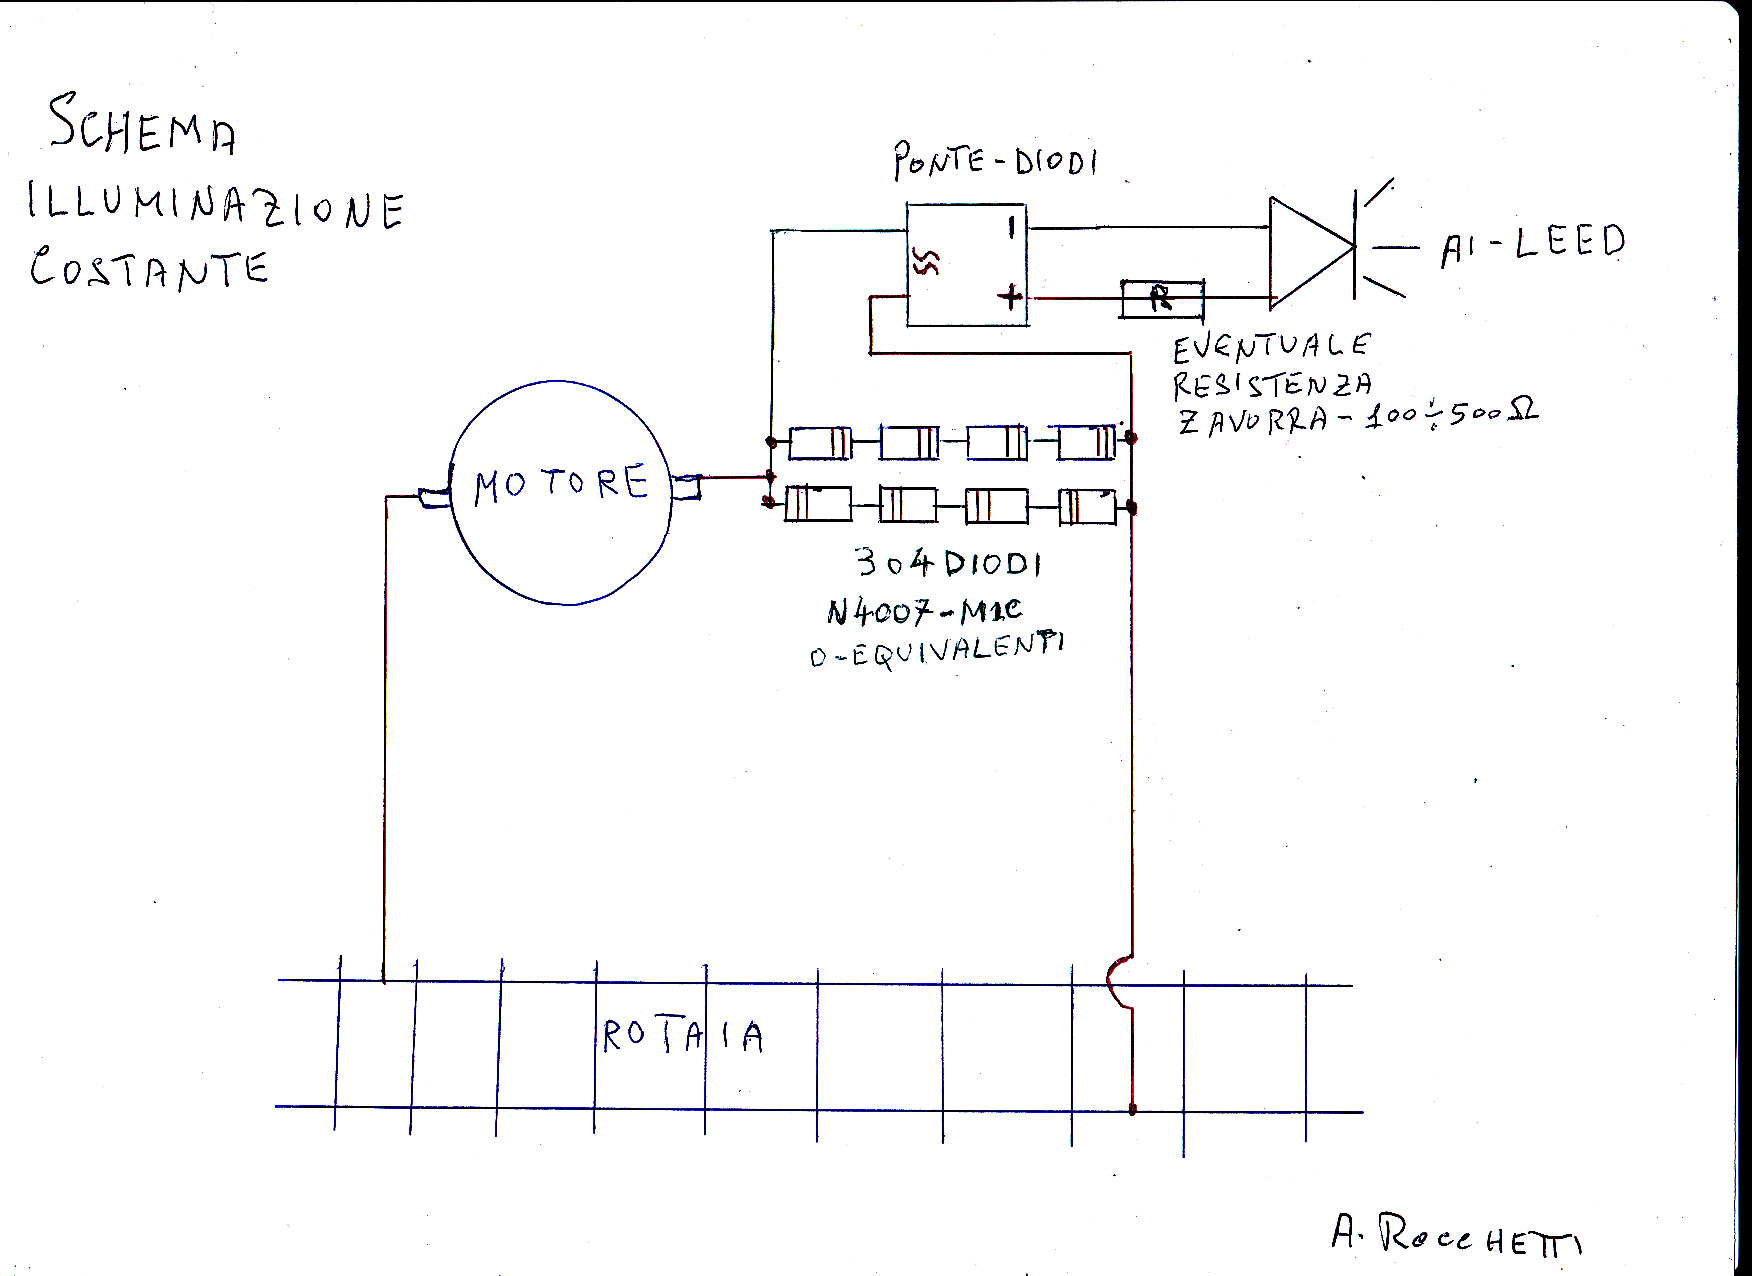 SCHEMA
ILLUMINAZIONE
COSTANTE
PONTE-DIODI
AI-LEED
R
EVENTUALE
RESISTENZA
ZAVORRA-100÷500Ω
MOTORE
3 O 4 DIODI
N4007-M1C
O-EQUIVALENTI
ROTAIA
A. ROCCHETTI